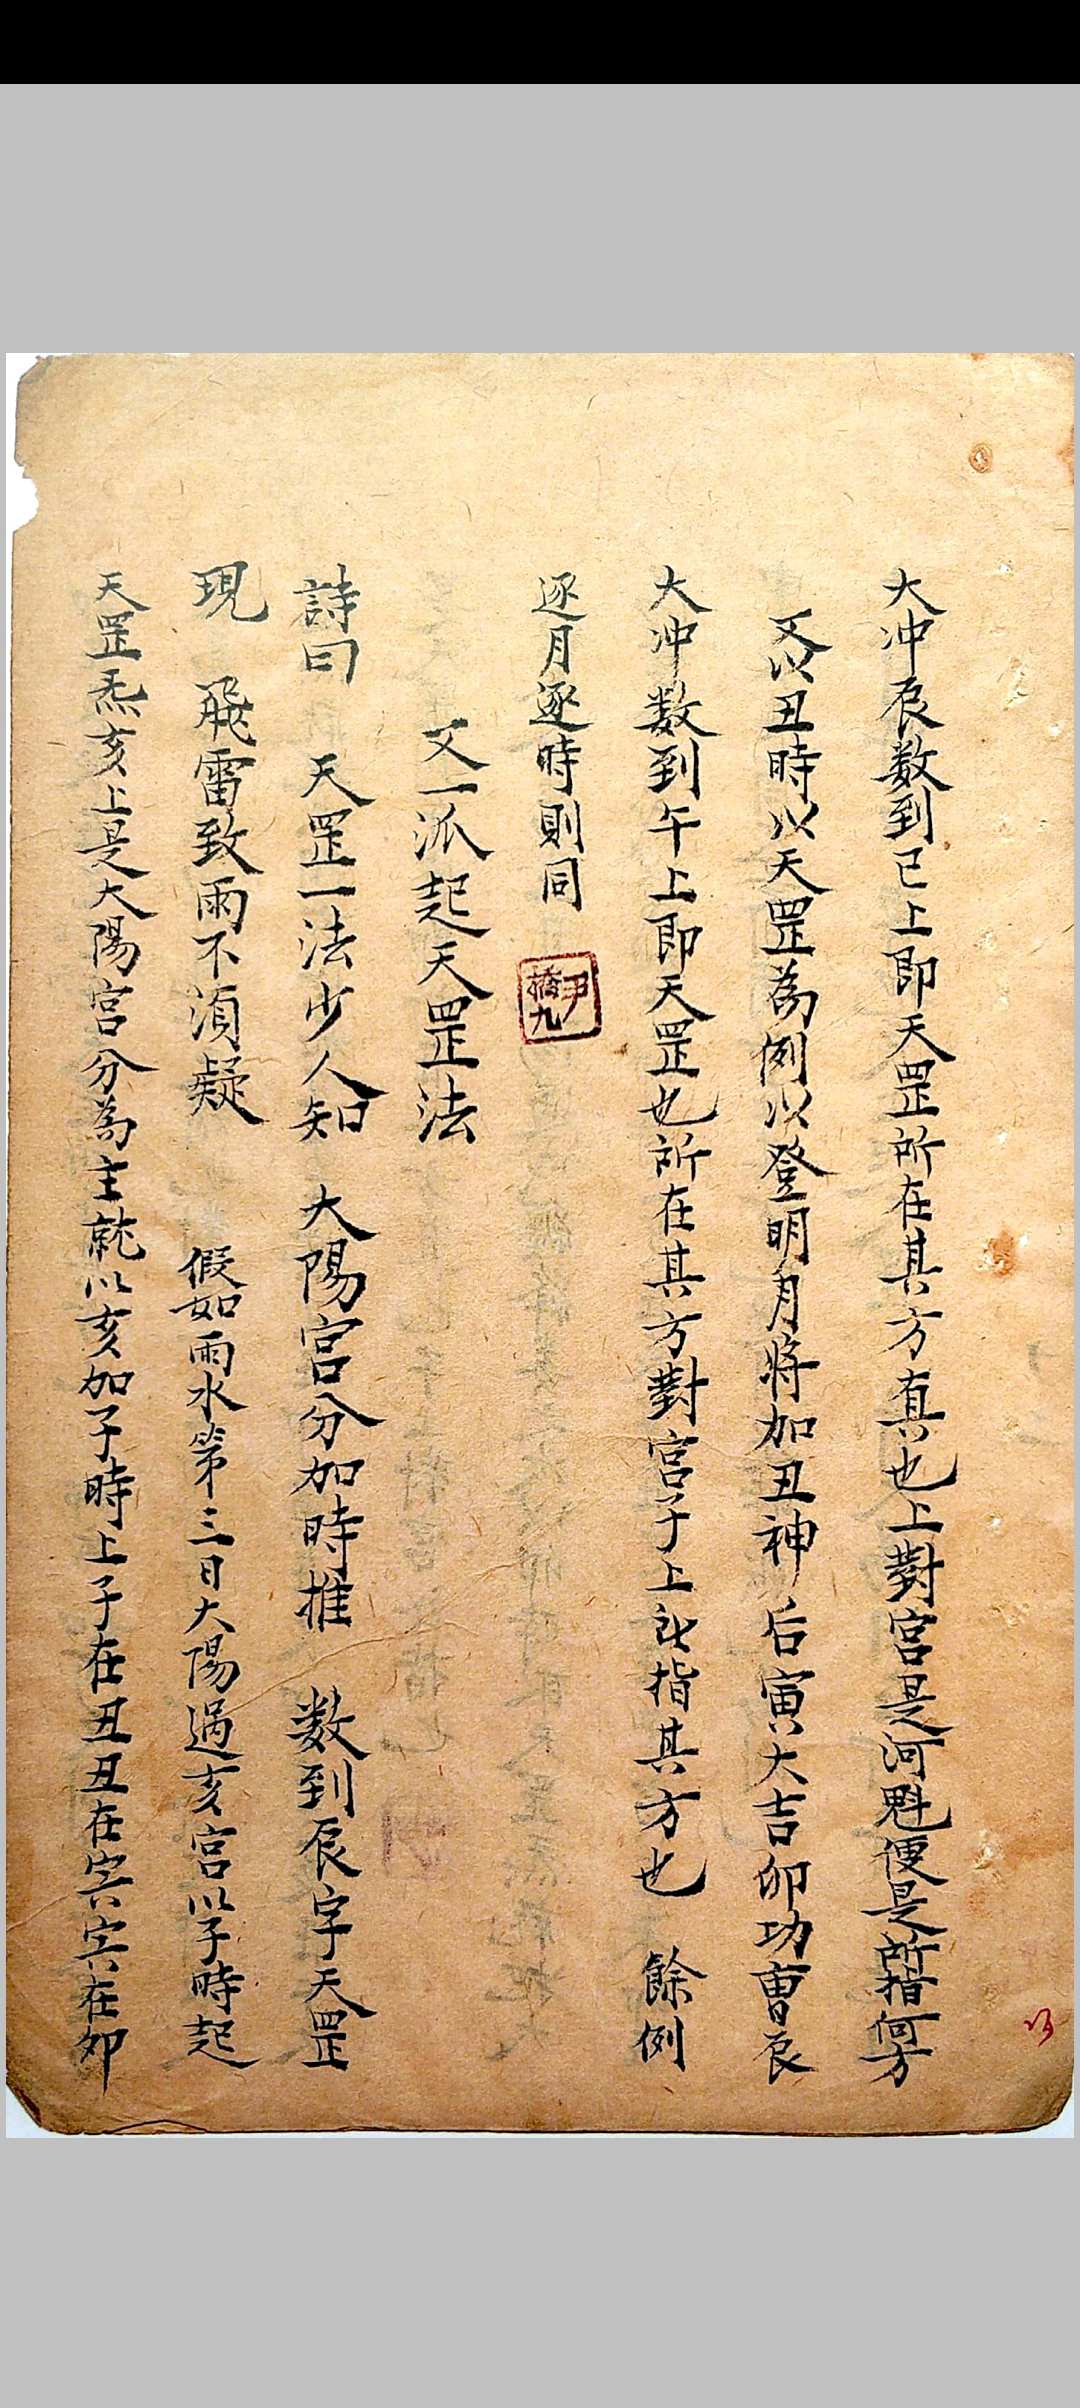 大冲辰数到巳上即天罡所在其方真也上對宮是河魁便是所指何方
又以丑時以天罡為例以登明月將加丑神后寅大吉卯功曹辰
大冲数到午上即天罡也所在其方對宮子上訣指其方也 餘例
逐月逐時則同
尹橋九
又一派起天罡法
詩曰 天罡一法少人知 大陽宮分加時推 数到辰字天罡
現 飛雷致雨不須疑 假如雨水第三日大陽過亥宮以子時起
天罡炁亥上是大陽宮分為主就以亥加子時上子在丑丑在寅寅在卯